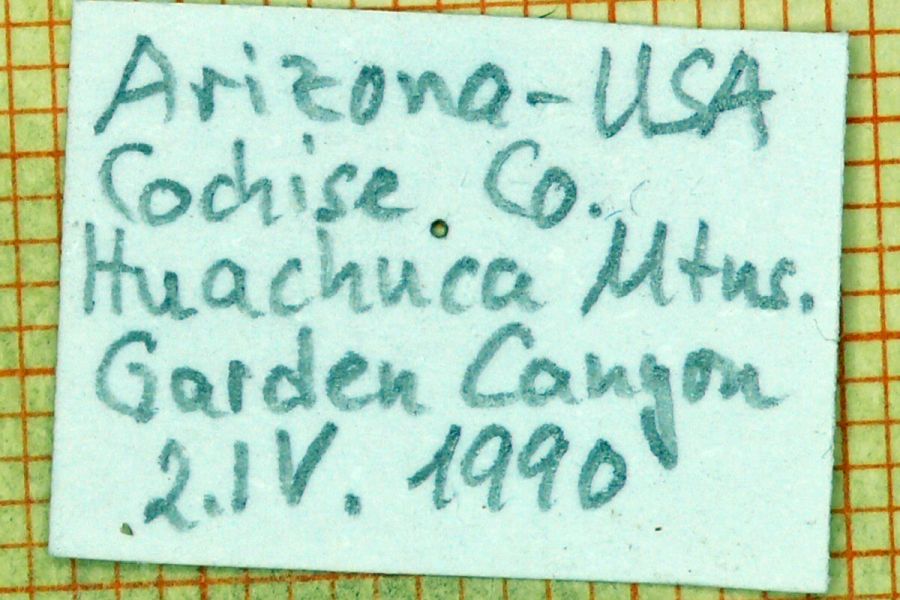 Arizona-USA
Cochise Co.
Huachuca Mtns.
Garden Canyon
2.IV. 1990